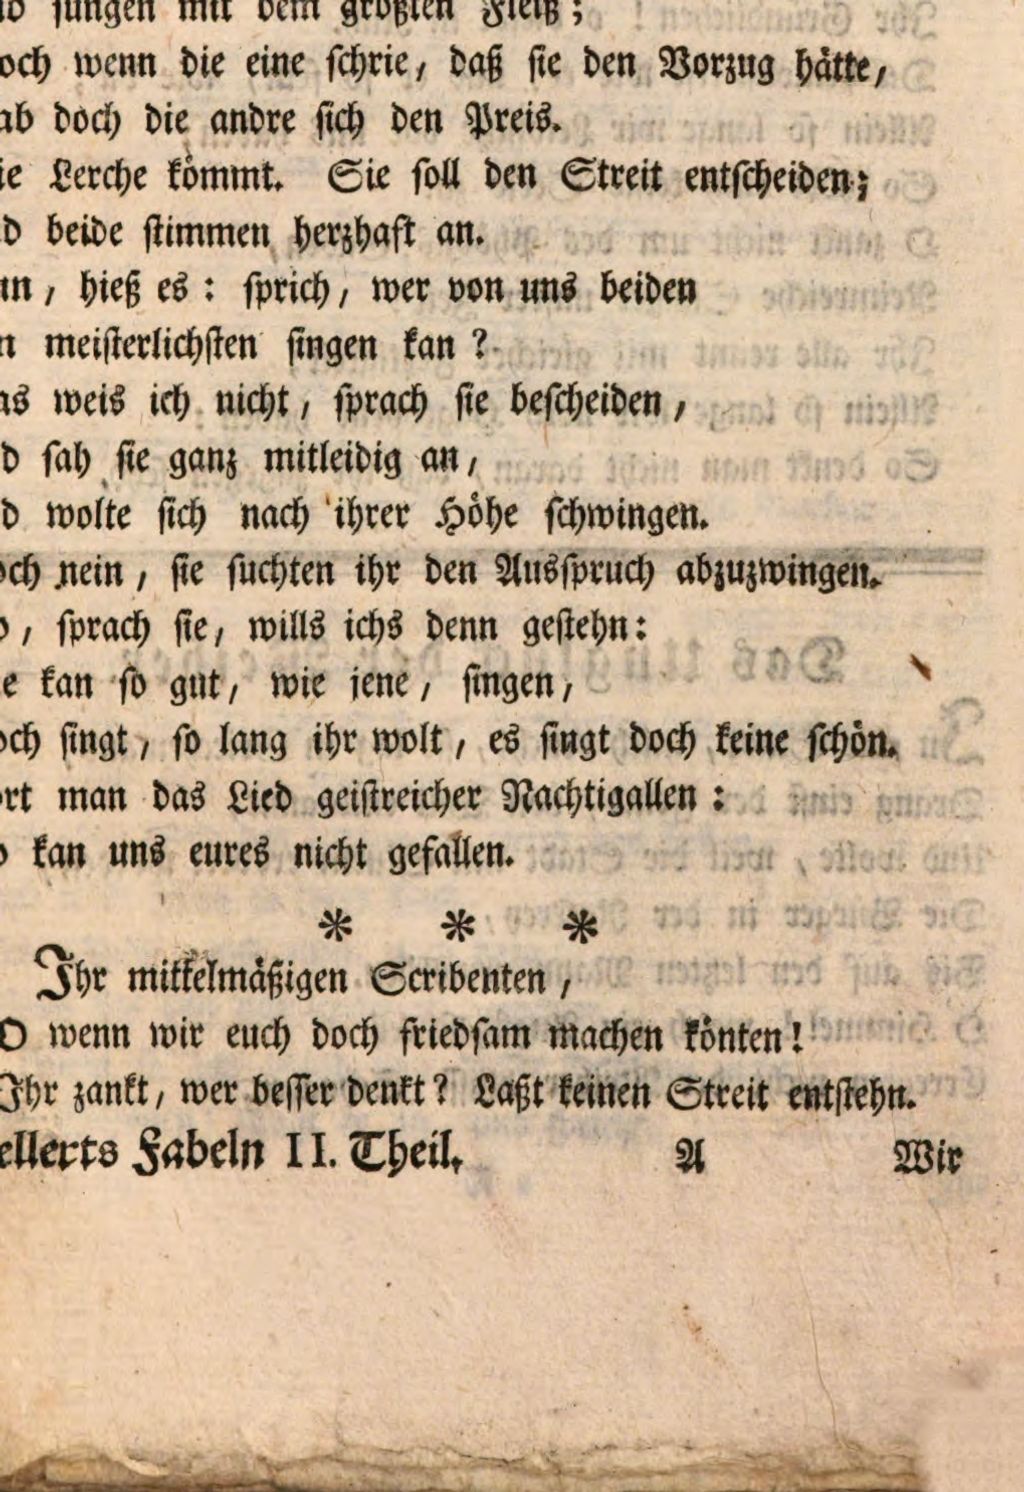 sungen mit dem größten Fleiß;
och wenn die eine schrie, daß sie den Vorzug hätte,
ab doch die andre sich den Preis.
ie Lerche kömmt. Sie soll den Streit entscheiden;
d beide stimmen herzhaft an.
un, hieß es: sprich, wer von uns beiden
n meisterlichsten singen kan?
as weis ich nicht, sprach sie bescheiden,
d sah sie ganz mitleidig an,
d wolte sich nach ihrer Höhe schwingen.
och nein, sie suchten ihr den Ausspruch abzuzwingen.
o, sprach sie, wills ichs denn gestehn:
e kan so gut, wie jene, singen,
och singt, so lang ihr wolt, es singt doch keine schön.
ört man das Lied geistreicher Nachtigallen:
o kan uns eures nicht gefallen.
* * *
Ihr mittelmäßigen Scribenten,
O wenn wir euch doch friedsam machen könten!
Ihr zankt, wer besser denkt? Laßt keinen Streit entstehn.
ellerts Fabeln II. Theil. A Wir